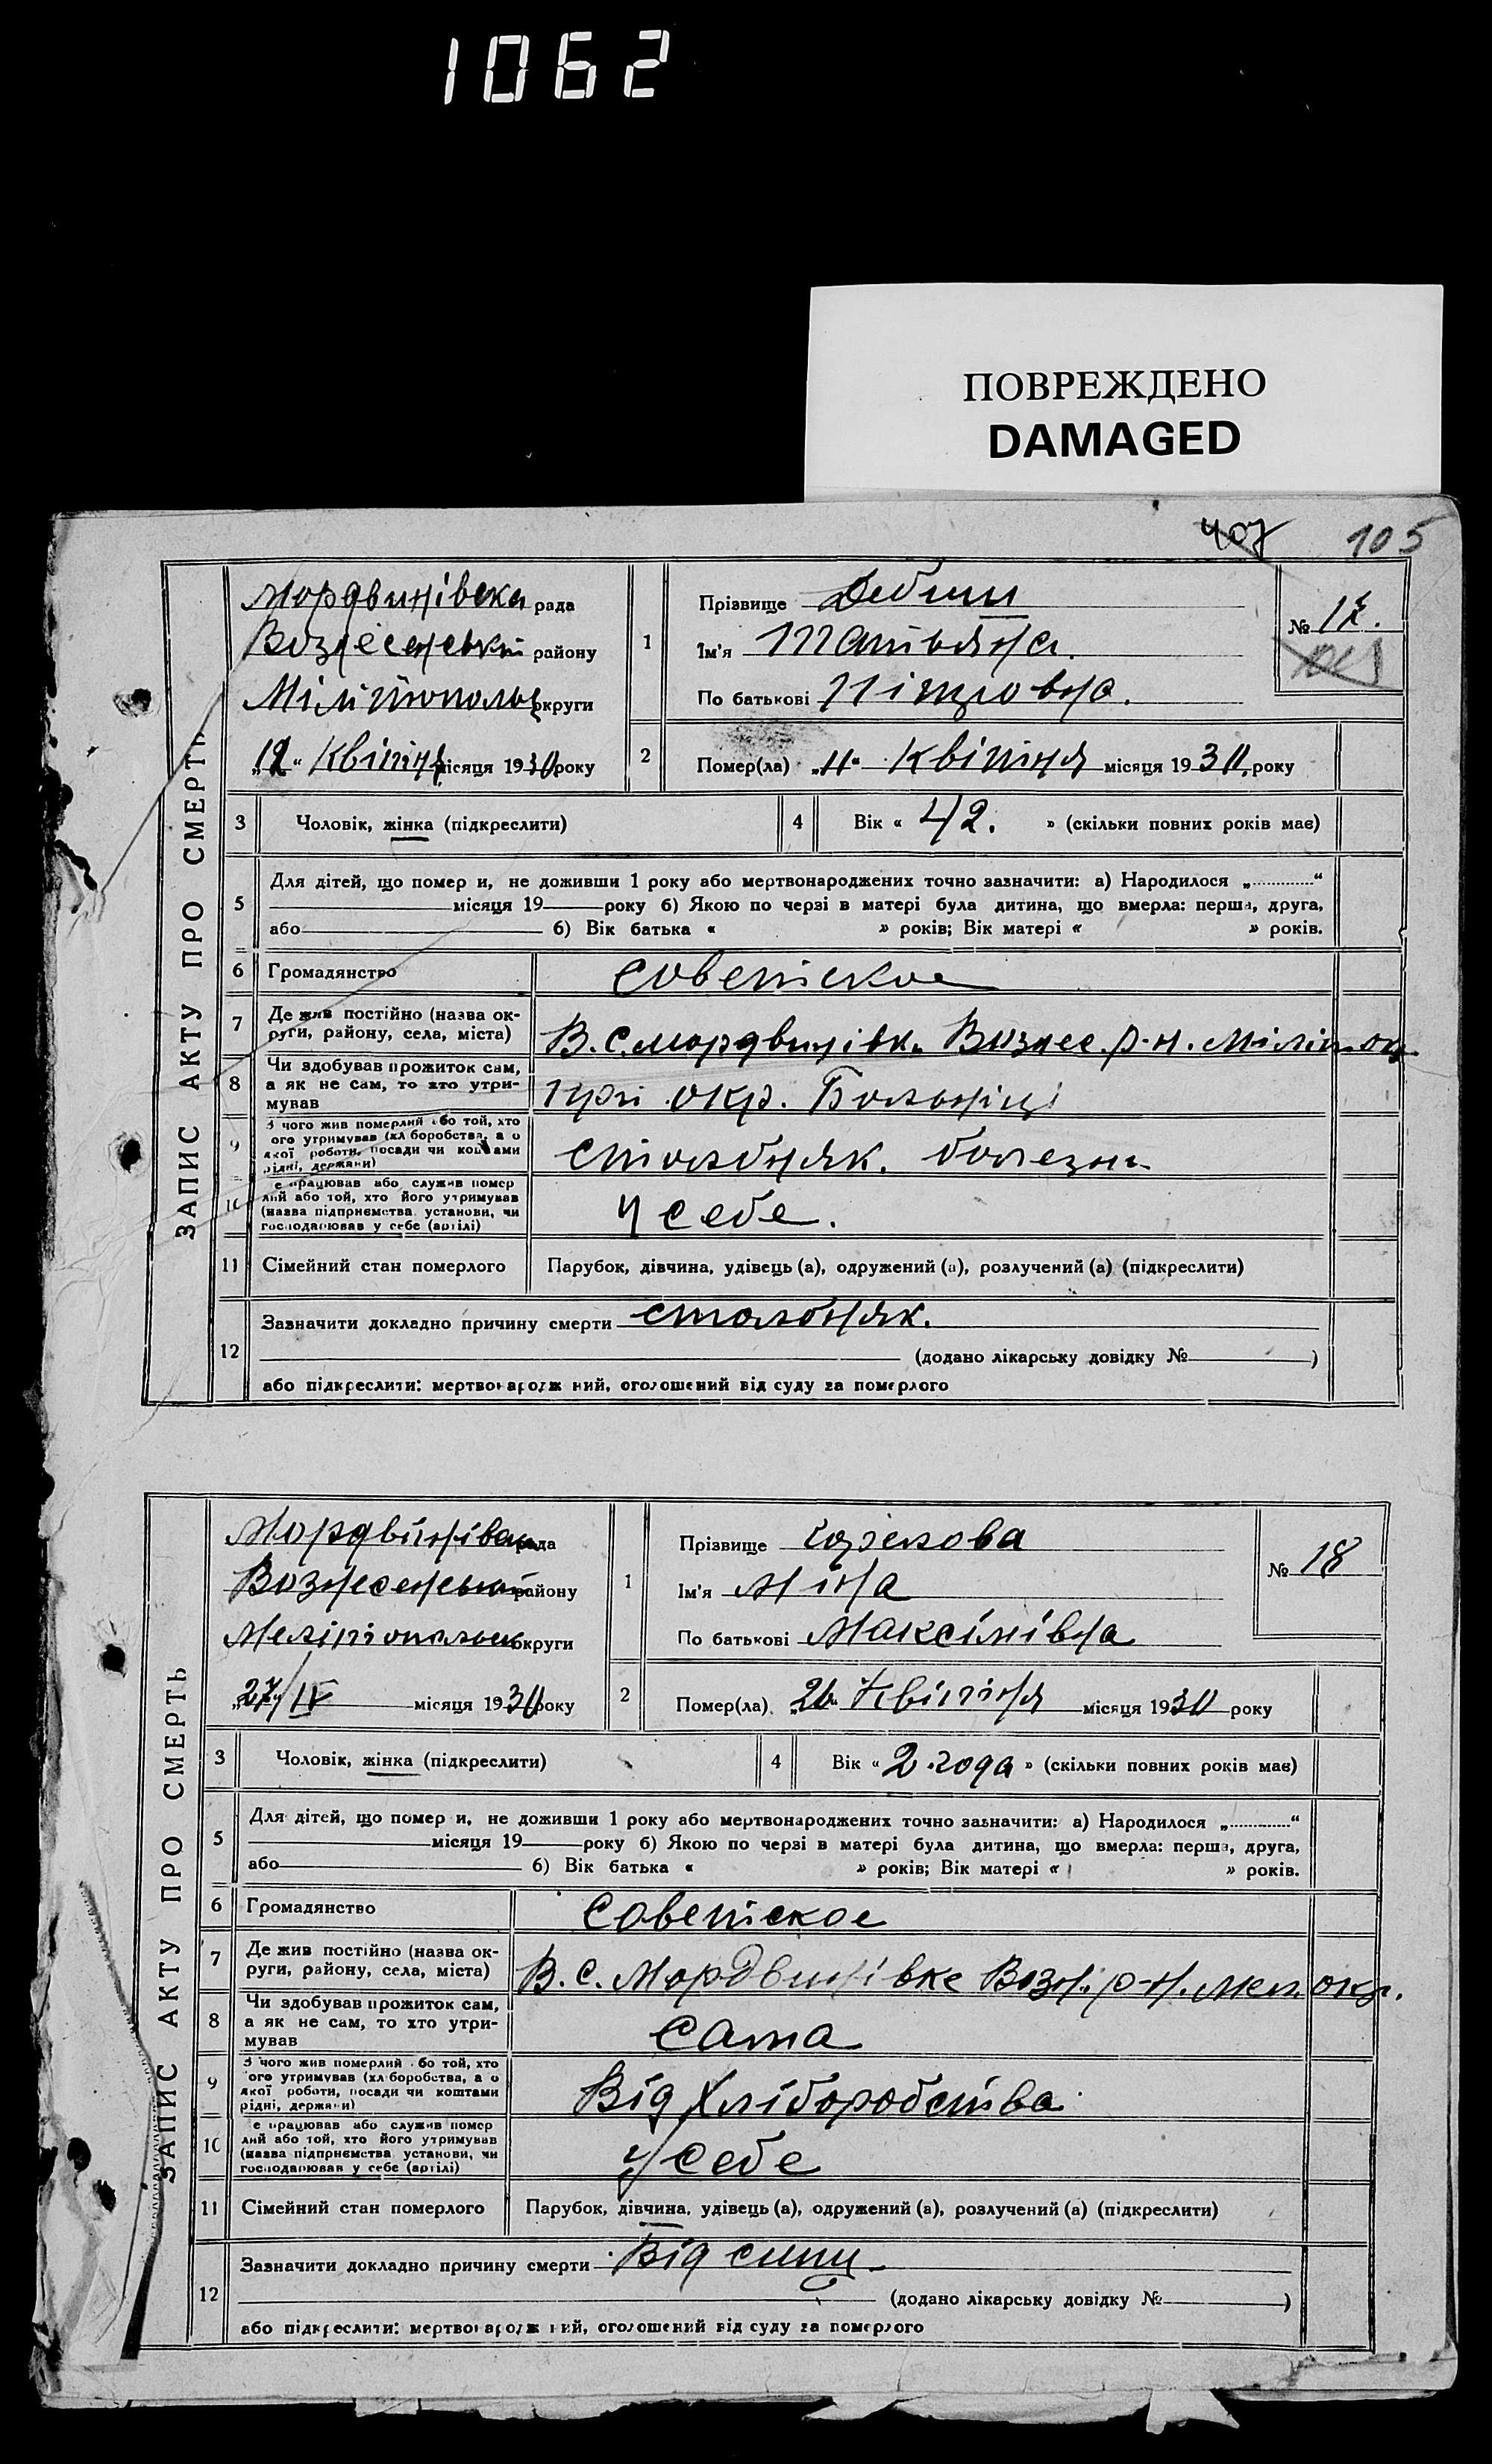 1062
ПОВРЕЖДЕНО
DAMAGED
407 105
ЗАПИС АКТУ ПРО СМЕРТЬ
Мордвинівска рада
Вознесенський району
округи
„12“ Квітня місяця 1930 року
1
Прізвище
Ім'я Татьяна.
По батькові
№
2
Помер(ла) „11“ Квітня місяця 1930 року
3 Чоловік, жінка (підкреслити)
4 Вік « 42. » (скільки повних років має)
5 Для дітей, що помер и, не доживши 1 року або мертвонароджених точно зазначити: а) Народилося „ “
місяця 19 року б) Якою по черзі в матері була дитина, що вмерла: перша, друга,
або б) Вік батька « » років; Вік матері « » років.
6 Громадянство Советское
7 Де жив постійно (назва ок-
руги, району, села, міста) В. С. Мордвинівк. Вознес. р-н. окр.
8 Чи здобував прожиток сам,
а як не сам, то хто утри-
мував при окр. Больніці
9 З чого жив померлий або той, хто
ого утримував (хл боробства, а о
якої роботи, посади чи коштами
рідні, держави) Столбняк. болезн.
10 е працював або служив помер
лий або той, хто його утримував
(назва підприємства установи, чи
господарював у себе (артілі) У себе.
11 Сімейний стан померлого Парубок, дівчина, удівець (а), одружений (а), розлучений (а) (підкреслити)
12 Зазначити докладно причину смерти столбняк.
(додано лікарську довідку № )
або підкреслити: мертвонародж ний, оголошений від суду за померлого
ЗАПИС АКТУ ПРО СМЕРТЬ
Мордвінівска рада
Вознесенський району
округи
„27“/IV місяця 1930 року
1
Прізвище
Ім'я
По батькові Максімівна
№ 18
2
Помер(ла) „26“ Квітня місяця 1930 року
3 Чоловік, жінка (підкреслити)
4 Вік « 2 года » (скільки повних років має)
5 Для дітей, що помер и, не доживши 1 року або мертвонароджених точно зазначити: а) Народилося „ “
місяця 19 року б) Якою по черзі в матері була дитина, що вмерла: перша, друга,
або б) Вік батька « » років; Вік матері « » років.
6 Громадянство Советское
7 Де жив постійно (назва ок-
руги, району, села, міста) В. С. Мордвинівке Возн. р-н. Мел. окр.
8 Чи здобував прожиток сам,
а як не сам, то хто утри-
мував Сама
9 З чого жив померлий або той, хто
ого утримував (хл боробства, а о
якої роботи, посади чи коштами
рідні, держави) Від Хліборобства
10 е працював або служив помер
лий або той, хто його утримував
(назва підприємства установи, чи
господарював у себе (артілі) У себе
11 Сімейний стан померлого Парубок, дівчина, удівець (а), одружений (а), розлучений (а) (підкреслити)
12 Зазначити докладно причину смерти Від сипи
(додано лікарську довідку № )
або підкреслити: мертвонародж ний, оголошений від суду за померлого